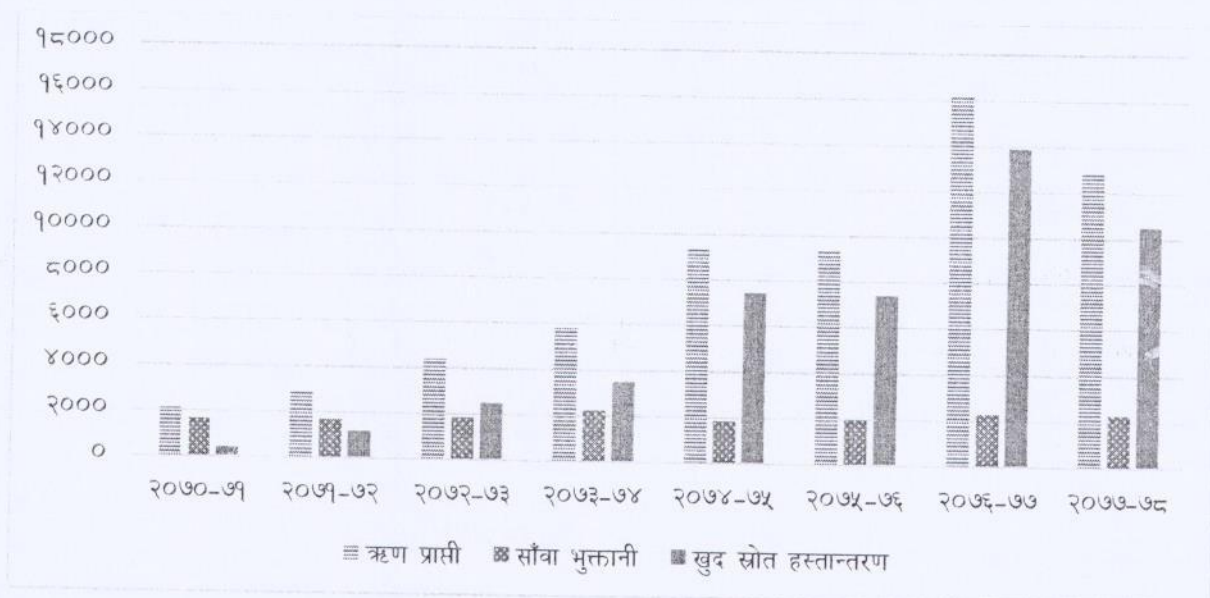 १८०००
१६०००
१४०००
१२०००
१००००
८०००
६०००
४०००
२०००
०
२०७०-७१ २०७१-७२ २०७२-७३ २०७३-७४ २०७४-७५ २०७५-७६ २०७६-७७ २०७७-७८
ऋण प्राप्ती साँवा भुक्तानी खुद स्रोत हस्तान्तरण